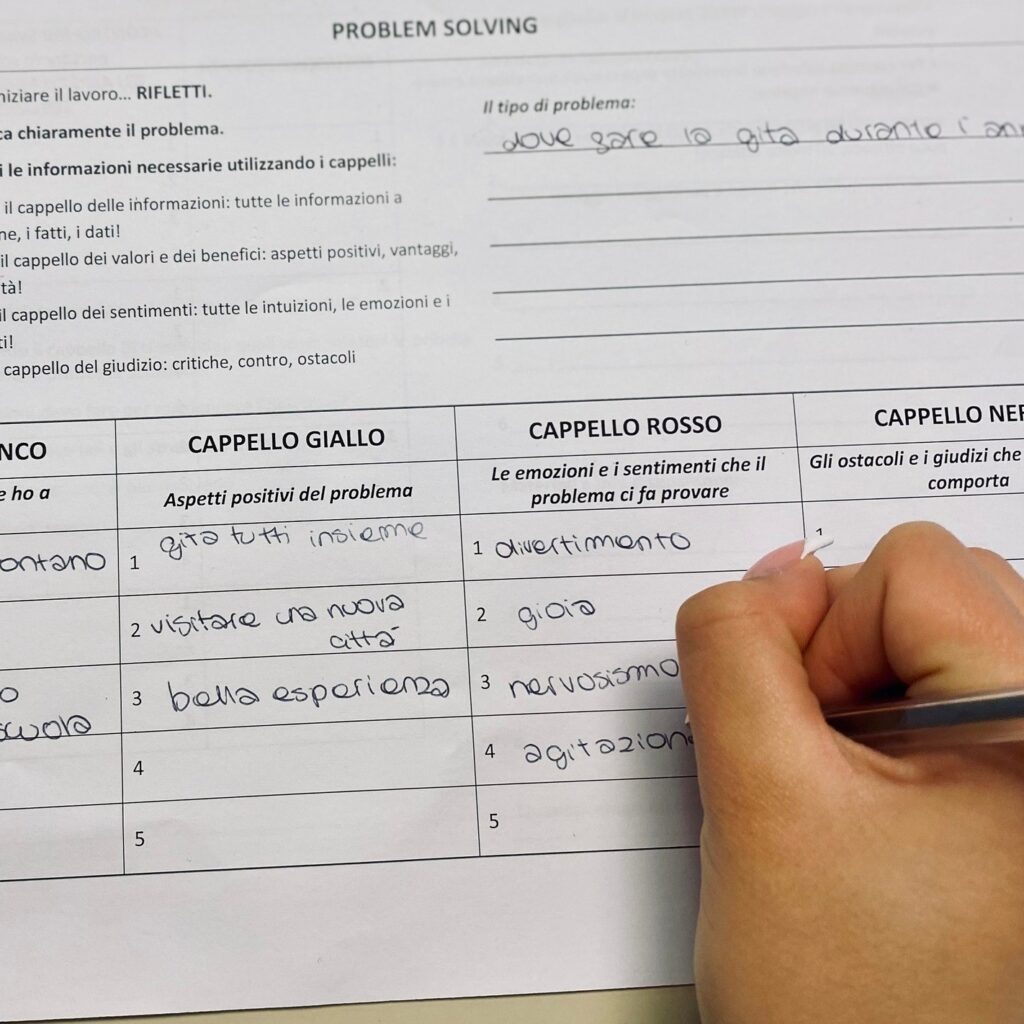 PROBLEM SOLVING
niziare il lavoro... RIFLETTI.
ca chiaramente il problema.
i le informazioni necessarie utilizzando i cappelli:
il cappello delle informazioni: tutte le informazioni a
ne, i fatti, i dati!
il cappello dei valori e dei benefici: aspetti positivi, vantaggi,
tà!
il cappello dei sentimenti: tutte le intuizioni, le emozioni e i
ti!
cappello del giudizio: critiche, contro, ostacoli
Il tipo di problema:
dove fare la gita durante i ann
NCO
e ho a
ontano
o
scuola
CAPPELLO GIALLO
Aspetti positivi del problema
1 gita tutti insieme
2 visitare una nuova
città
3 bella esperienza
4
5
CAPPELLO ROSSO
Le emozioni e i sentimenti che il
problema ci fa provare
1 divertimento
2 gioia
3 nervosismo
4 agitazion
5
CAPPELLO NER
Gli ostacoli e i giudizi che
comporta
1